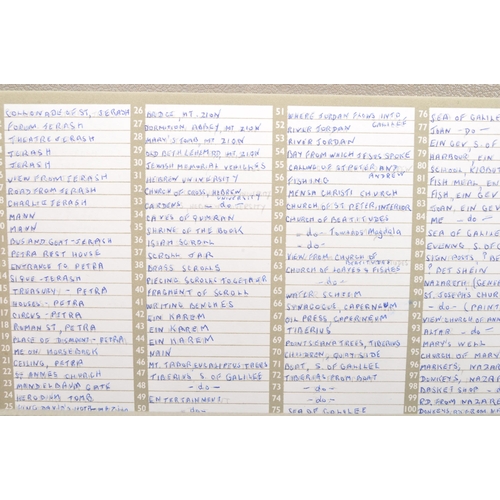 COLLONADE OF ST, JERASH
FORUM JERASH
THEATRE JERASH
JERASH
JERASH
VIEW FROM JERASH
ROAD FROM JERASH
CHARLIE JERASH
MANN
MANN
DUG AND GOAT - JERASH
PETRA REST HOUSE
ENTRANCE TO PETRA
SIQUE - PETRA
TREASURY - PETRA
HOUSES - PETRA
CIRCUS - PETRA
18 ROMAN ST, PETRA
19 PLACE OF DISMOUNT - PETRA
20 ME ON HORSEBACK
21 CEILING, PETRA
22 ST ANNES CHURCH
23 MANDELBAUM GATE
24 HERODIUM TOMB
25
26 BRIDGE, MT ZION
27 DORMITION ABBEY, MT ZION
28 MARY'S TOMB, MT ZION
29 OLD BETHLEHEM RD, MT ZION
30 JEWISH MEMORIAL VEHICLES
31 HEBREW UNIVERSITY
32 CHURCH OF CROSS, HEBREW UNIVERSITY
33 GARDENS - do -
34 CAVES OF QUMRAN
35 SHRINE OF THE BOOK
36 ISIAH SCROLL
37 SCROLL JAR
38 BRASS SCROLLS
39 PIECING SCROLLS TOGETHER
40 FRAGMENT OF SCROLL
41 WRITING BENCHES
42 EIN KAREM
43 EIN KAREM
44 EIN KAREM
45 NAIN
46 MT. TABOR EUCALYPTUS TREES
47 TIBERIUS S. OF GALILEE
48 - do -
49 ENTERTAINMENT
50 - do -
51 WHERE JORDAN FLOWS INTO GALILEE
52 RIVER JORDAN
53 RIVER JORDAN
54 BAY FROM WHICH JESUS SPOKE
55 CALLING OF ST. PETER AND ANDREW
56 FISHING
57 MENSA CHRISTI CHURCH
58 CHURCH OF ST PETER, INTERIOR
59 CHURCH OF BEATITUDES
60 - do - TOWARDS Magdala
61 - do -
62 VIEW FROM CHURCH OF BEATITUDES
63 CHURCH OF LOAVES & FISHES
64 - do -
65 WATER SCHEEM
66 SYNAGOGUE, CAPERNEUM
67 OIL PRESS, CAPERNEUM
68 TIBERIUS
69 POINTSIANA TREES, TIBERIUS
70 CHILDREN, BOAT SIDE
71 BOAT, S. OF GALILEE
72 TIBERIAS FROM BOAT
73 - do -
74 - do -
75 SEA OF GALILEE
76 SEA OF GALILEE
77 JOHN - DO -
78 EIN GEV, S. OF
79 HARBOUR, EIN
80 SCHOOL, KIBBUT
81 FISH MEAL, EIN
82 FISH, EIN GEV
83 JOHN, EIN GEV
84 ME - DO -
85 SEA OF GALILEE
86 EVENING, S. OF
87 SIGN-POSTS, ? BE
88 ? BET SHEIN
89 NAZARETH (GENER
90 ST. JOSEPHS CHUR
91 - do - (PAINT
92 VIEW CHURCH OF ANN
93 ALTAR - do -
94 MARY'S WELL
95 CHURCH OF MARY
96 MARKETS, NAZAR
97 DONKEYS, NAZAR
98 BASKET SHOP - D
99 RD. FROM NAZARE
100 DONKEYS, RD FROM NA